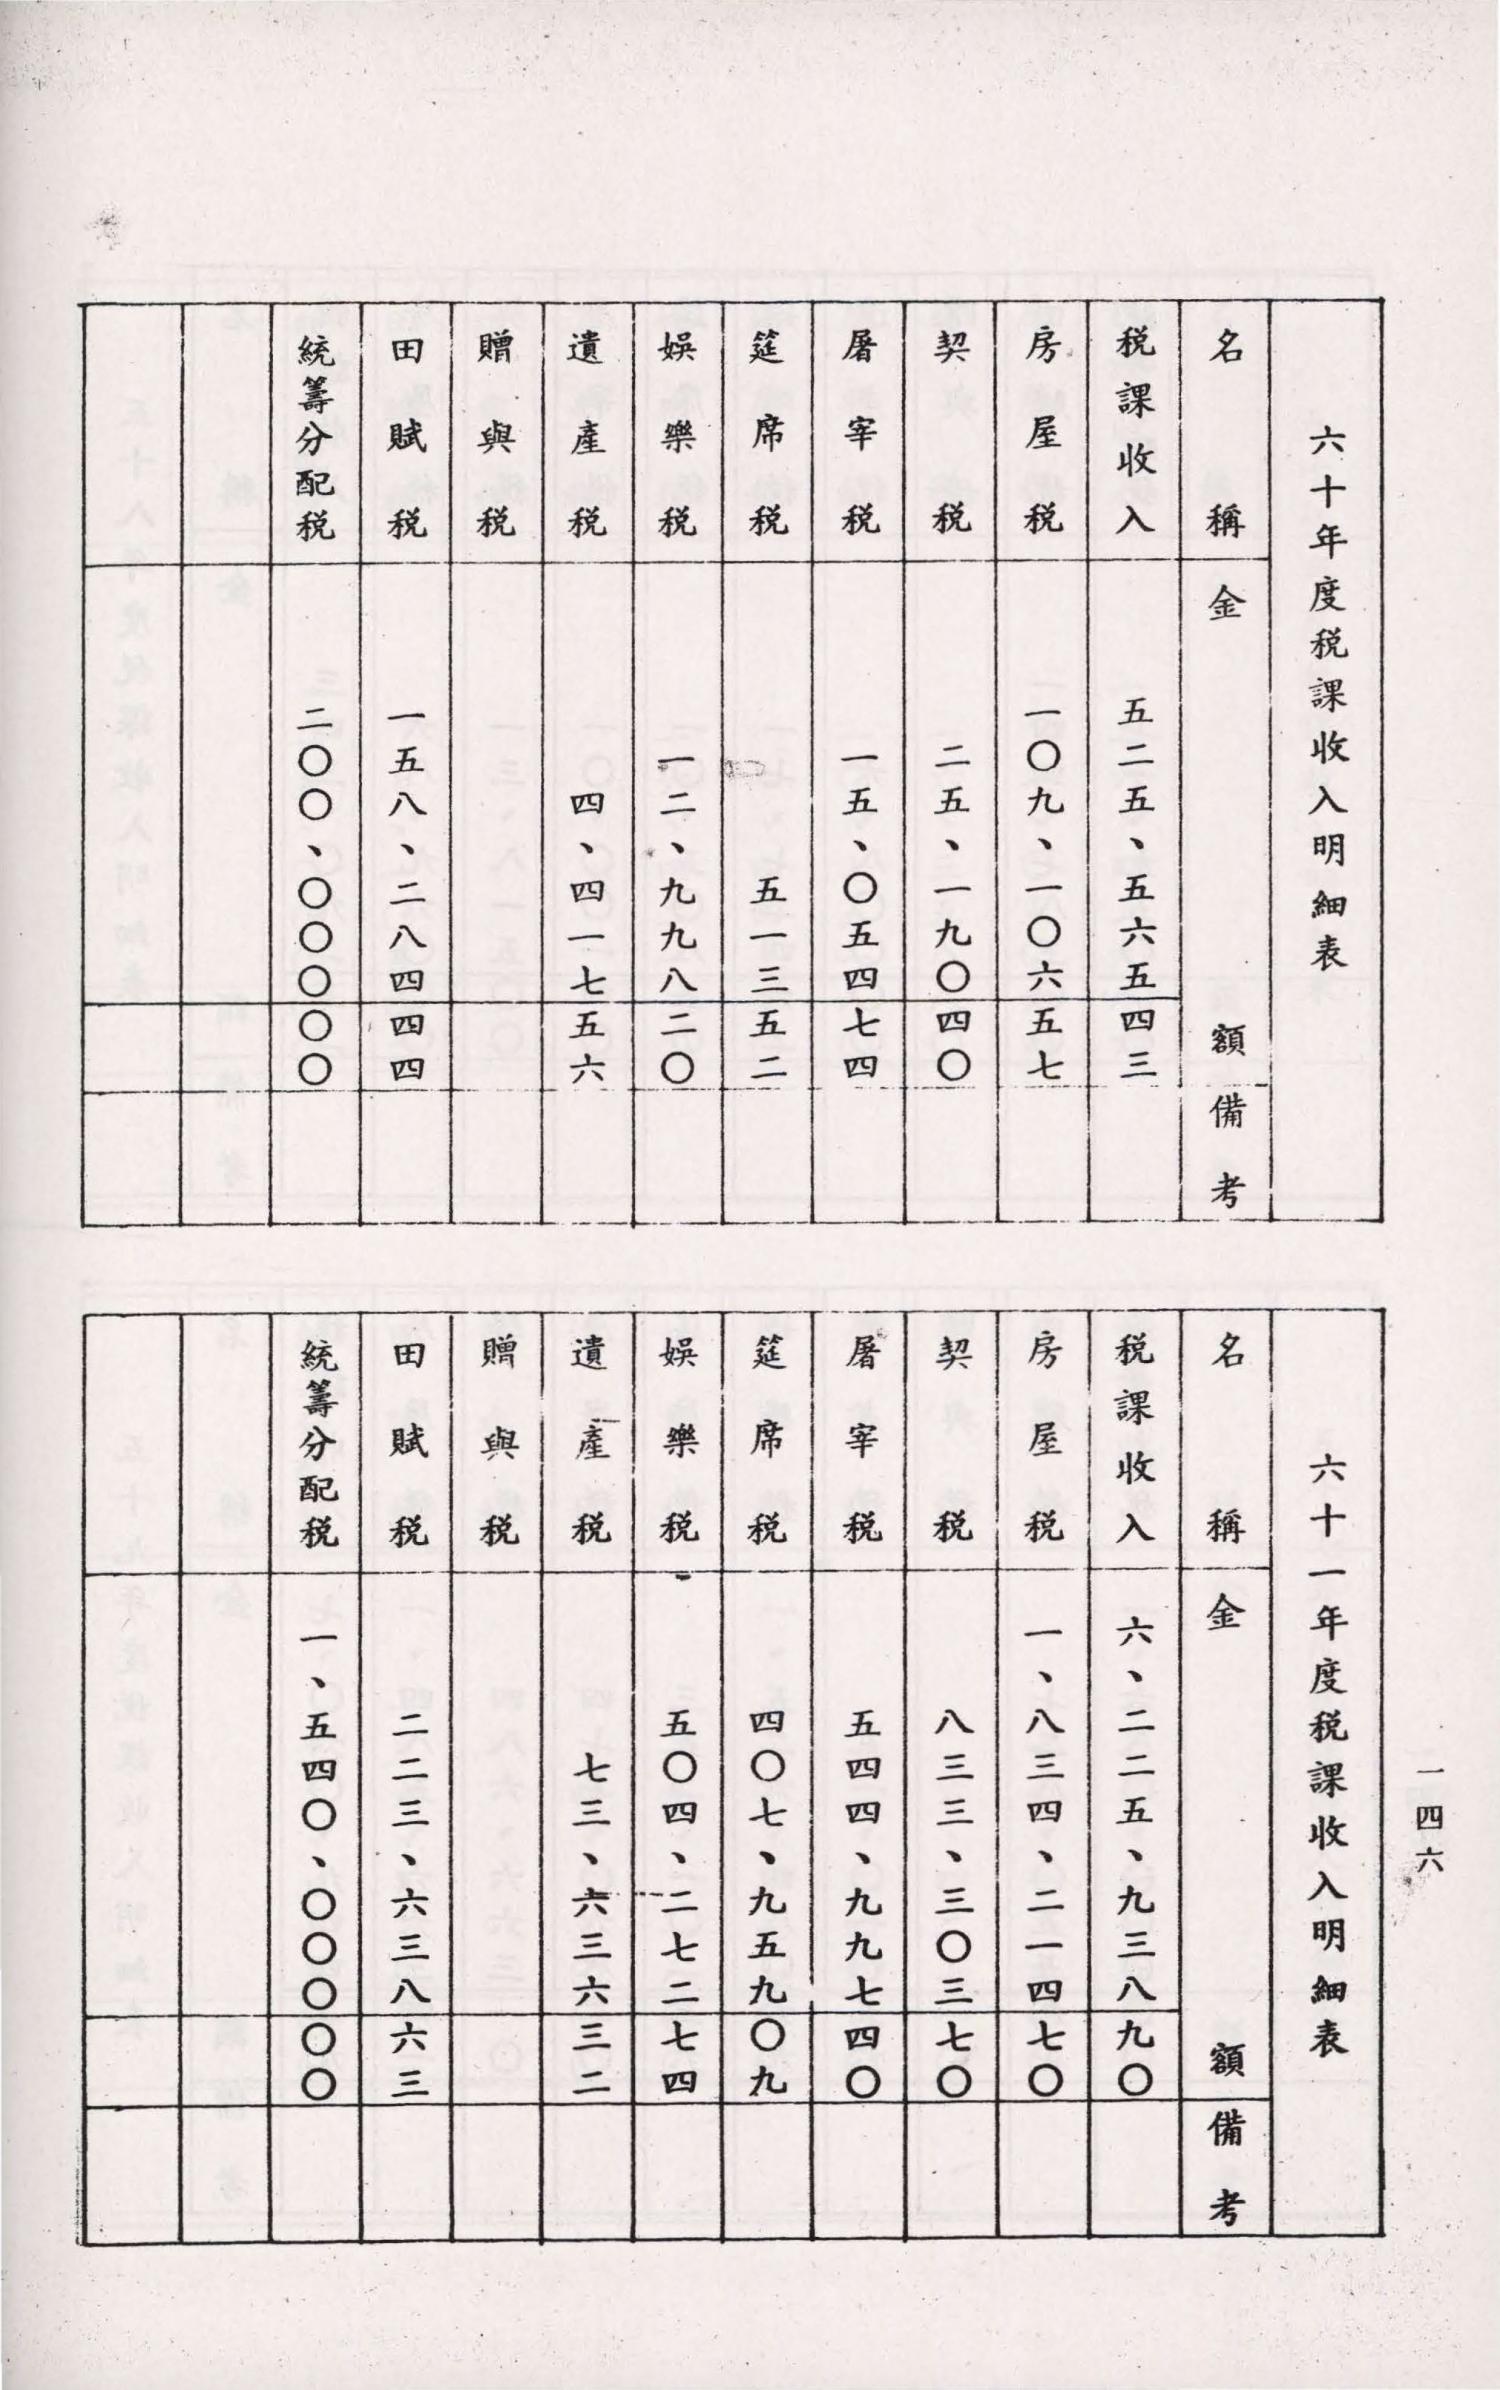 六十年度税課收入明細表
名稱 金額 備考
税課收入 五二五、五六五四三
房屋税 一〇九、一〇六五七
契税 二五、一九〇四〇
屠宰税 一五、〇五四七四
筵席税 五一三五二
娛樂税 一二、九九八二〇
遺產税 四、四一七五六
贈與税
田賦税 一五八、二八四四四
統籌分配税 二〇〇、〇〇〇〇〇
六十一年度税課收入明細表
名稱 金額 備考
税課收入 六、二二五、九三八九〇
房屋税 一、八三四、二一四七〇
契税 八三三、三〇三七〇
屠宰税 五四四、九九七四〇
筵席税 四〇七、九五九〇九
娛樂税 五〇四、二七二七四
遺產税 七三、六三六三二
贈與税
田賦税 二二三、六三八六三
統籌分配税 一、五四〇、〇〇〇〇〇
一四六